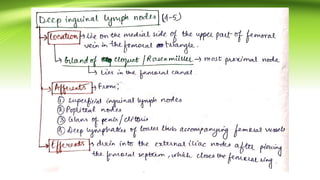 Deep inguinal lymph nodes (4-5)
Location → Lie on the medial side of the upper part of femoral
vein in the femoral triangle.
→ Gland of Cloquet / Rosenmuller → most proximal node
→ lies in the femoral canal
Afferents → From:
① superficial inguinal lymph nodes
② Popliteal nodes
③ Glans of penis / clitoris
④ Deep lymphatics of lower limb accompanying femoral vessels
Efferents → drain into the external iliac nodes after piercing
the femoral septum, which closes the femoral ring.